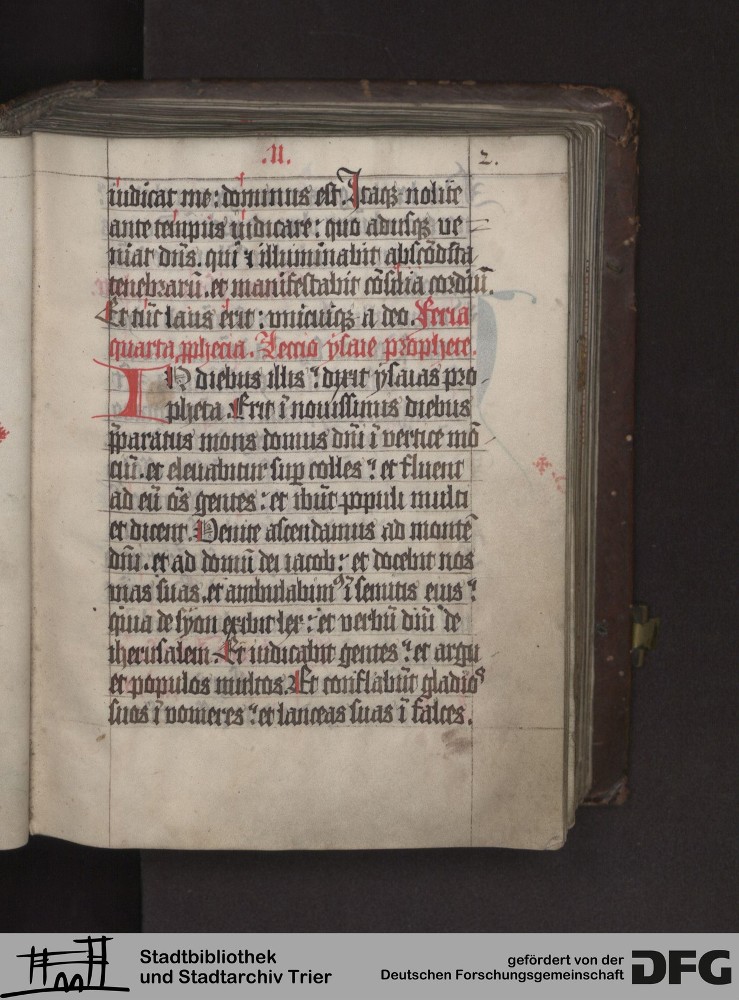 .II.
2.
iudicat me : dominus est. Itaqꝫ nolite
ante tempus iudicare : quo adusqꝫ ue
niat dn̄s. qui ⁊ illuminabit abscōdita
tenebrarū. et manifestabit cōsilia cordiū.
Et tūc laus erit : unicuiqꝫ a deo. Feria
quarta ꝓphecia. Lectio ysaie prophete.
IN diebus illis : dixit ysaias pro
pheta. Erit ī nouissimis diebus
p̄paratus mons domus dn̄i ī uertice mō
ciū. et eleuabitur suꝑ colles : et fluent
ad eū oīs gentes : et ibūt populi multi
et dicent. Uenite ascendamus ad montē
dn̄i. et ad domū dei iacob : et docebit nos
uias suas. et ambulabimꝰ ī semitis eius :
quia de syon exibit lex : et uerbū dn̄i de
iherusalem. Et iudicabit gentes : et argu
et populos multos. Et conflabūt gladioˢ
suos ī uomeres : et lanceas suas ī falces.
Stadtbibliothek
und Stadtarchiv Trier
gefördert von der
Deutschen Forschungsgemeinschaft
DFG